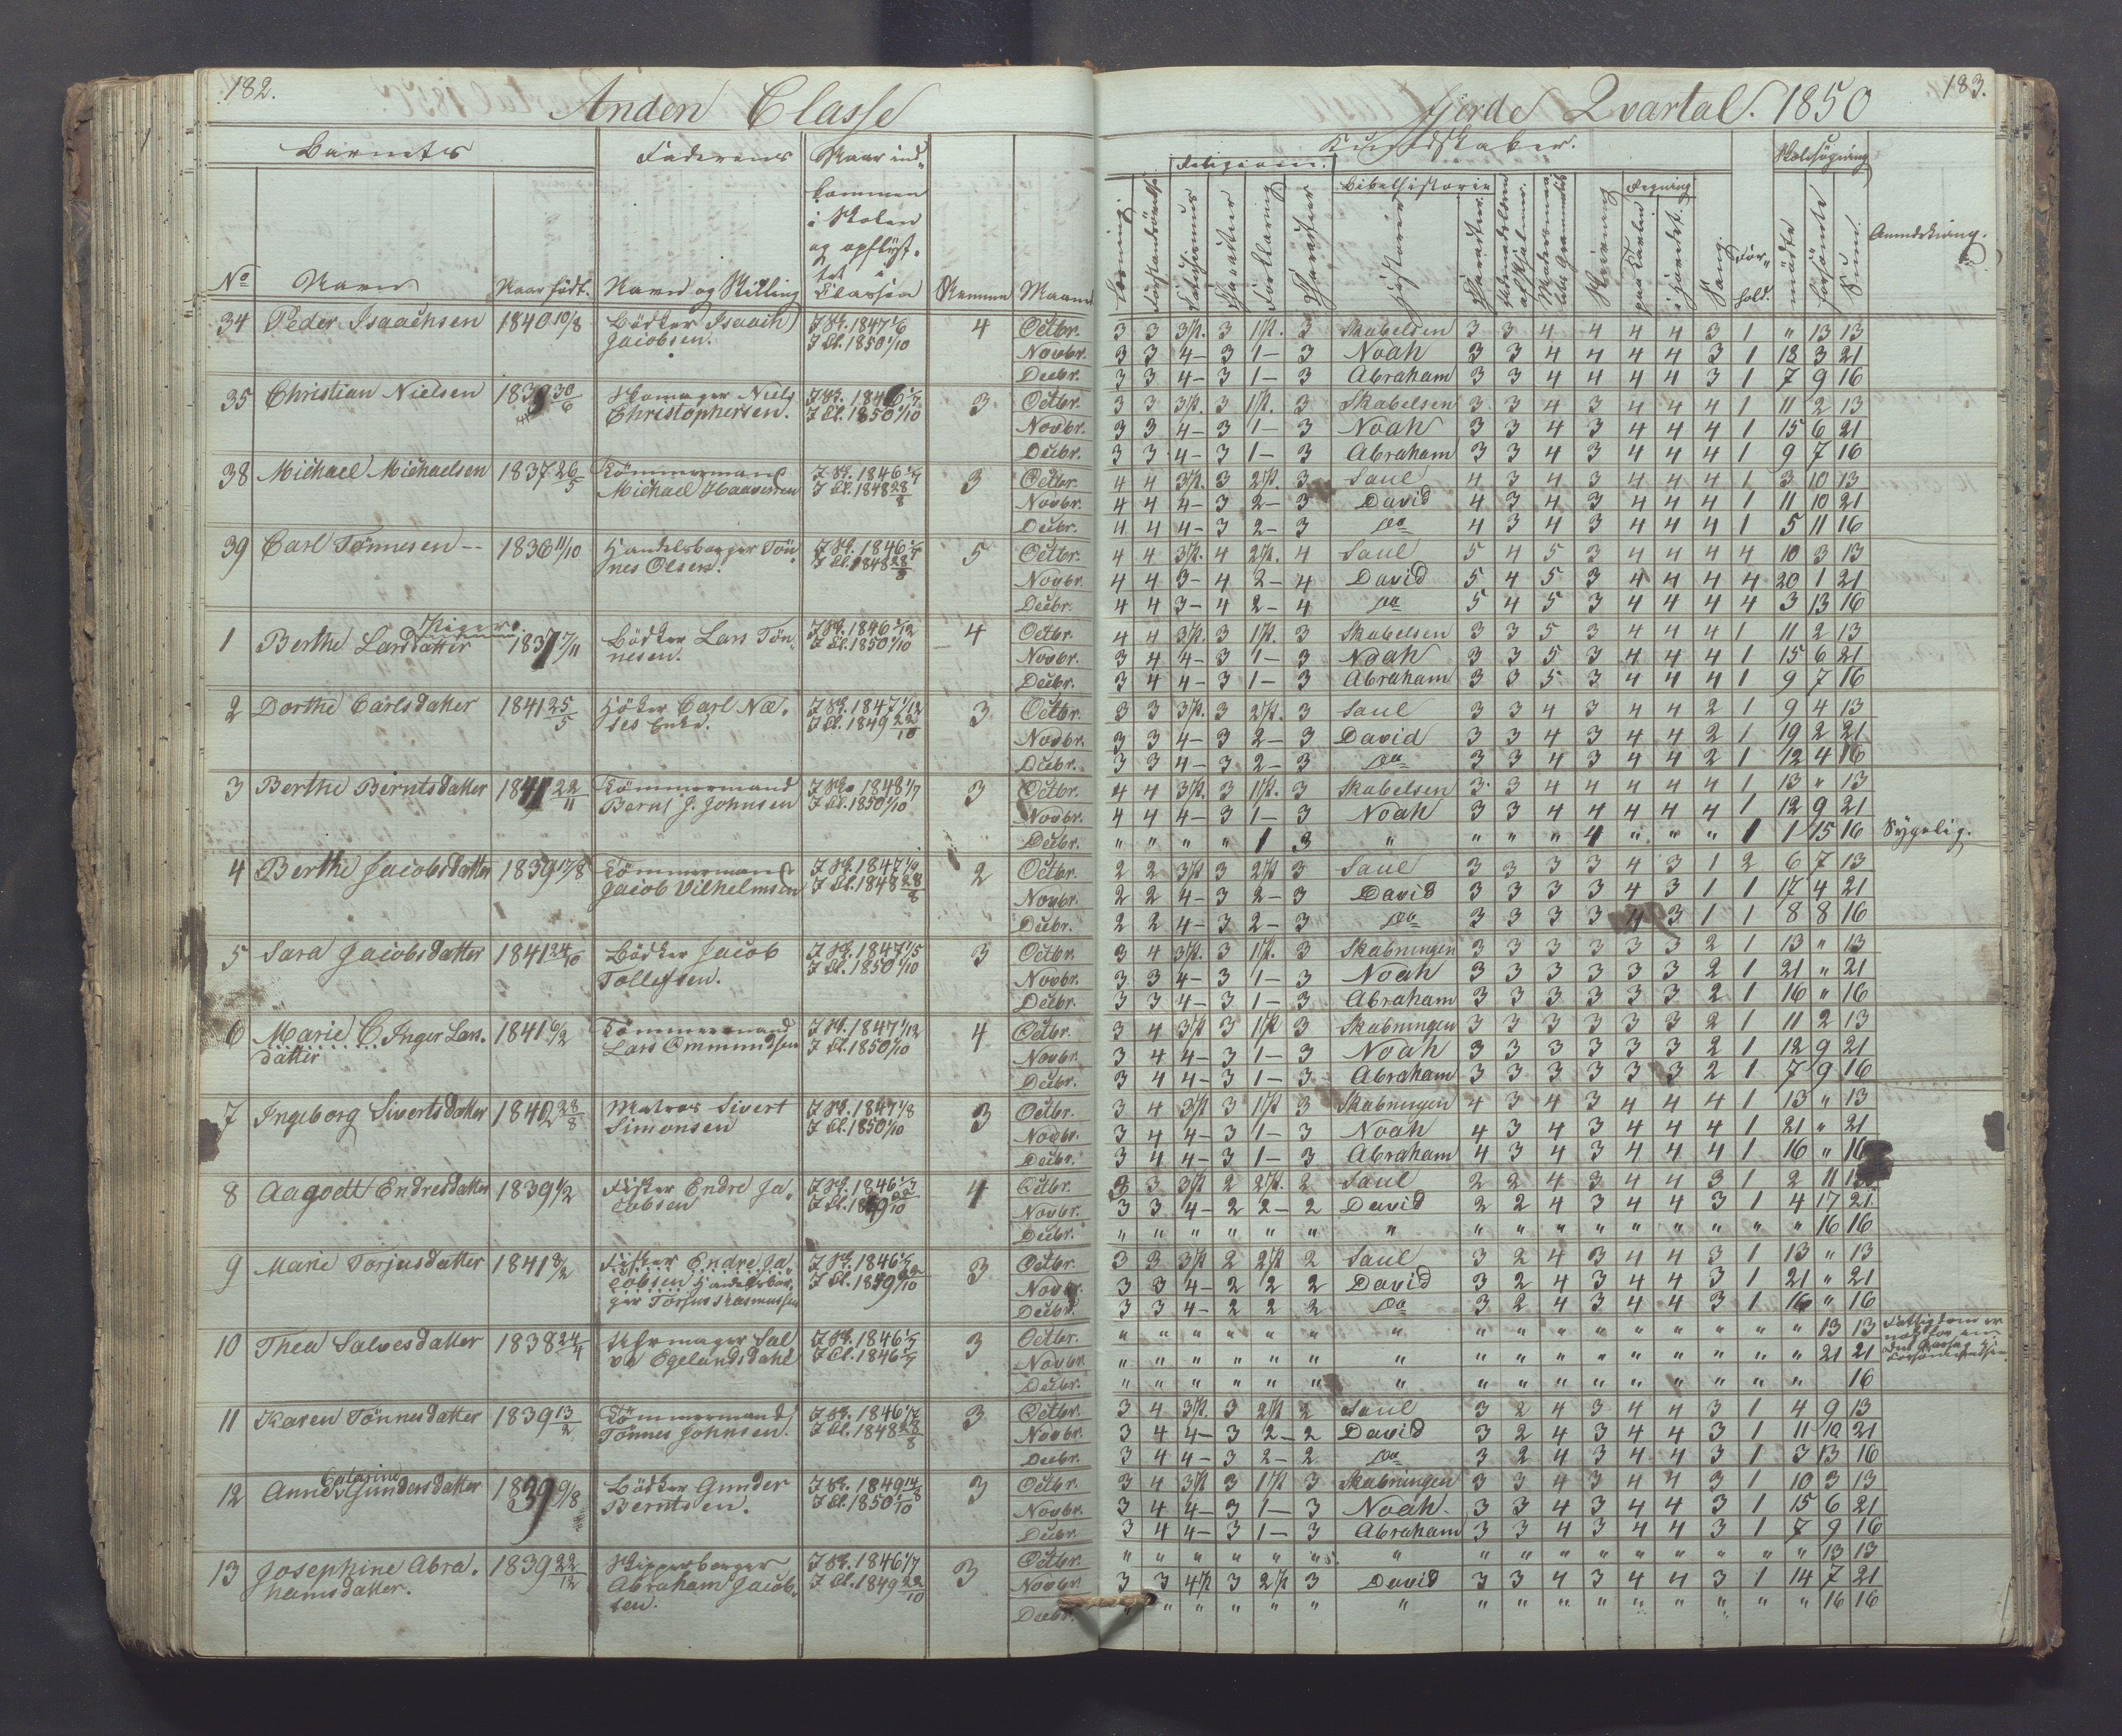 182.
Anden Classe
Barnets
Faderens
Naar ind-
kommen
i Skolen
og opflyt-
tet i
Classen
No
Navn
Naar født.
Navn og Stilling
Maaned
34 Peder Isaachsen 1840 10/8 Bödker Isaach I Sk. 1847 1/6 4 Octbr.
Jacobsen. I Cl. 1850 1/10 Novbr.
Decbr.
35 Christian Nielsen 1839 30/6 Skomager Niels 3 Octbr.
Christophersen. I Cl. 1850 1/10 Novbr.
Decbr.
38 Michael Michaelsen 1837 26/5 Tömmermand I Sk. 1846 1/7 3 Octbr.
Michael Haaversen I Cl. 1848 28/8 Novbr.
Decbr.
39 Carl Tönnesen -- 1836 11/10 Handelsborger Tön I Sk. 1846 1/7 5 Octbr.
nes Olsen. I Cl. 1848 28/8 Novbr.
Decbr.
Piger.
1 Berthe Larsdatter 1837 17/11 Bödker Lars Tön- I Sk. 1846 1/12 4 Octbr.
nesen. I Cl. 1850 1/10 Novbr.
Decbr.
2 Dorthe Carlsdatter 1841 25/5 Höker Carl Næ- I Sk. 1847 1/12 3 Octbr.
ses Enke. I Cl. 1849 22/10 Novbr.
Decbr.
3 Berthe Berntsdatter 1841 22/11 Tömmermand I Sk. 1848 1/7 3 Octbr.
Bernt J. Johnsen I Cl. 1850 1/10 Novbr.
Decbr.
4 Berthe Jacobsdatter 1839 17/8 Tömmermand I Sk. 1847 2 Octbr.
Jacob Vilhelmsen I Cl. 1848 28/8 Novbr.
Decbr.
5 Sara Jacobsdatter 1841 24/10 Bödker Jacob I Sk. 1847 1/5 3 Octbr.
Tollefsen. I Cl. 1850 1/10 Novbr.
Decbr.
6 Marie C. Inger Lars- 1841 6/2 Tömmermand I Sk. 1847 1/12 4 Octbr.
datter Lars Ommundsen I Cl. 1850 1/10 Novbr.
Decbr.
7 Ingeborg Sivertsdatter 1840 28/8 Matros Sivert I Sk. 1847 1/8 3 Octbr.
Simonsen I Cl. 1850 1/10 Novbr.
Decbr.
8 Aagodt Endresdatter 1839 1/2 Fisker Endre Ja- I Sk. 1846 4 Octbr.
cobsen I Cl. 1849 22/10 Novbr.
Decbr.
9 Marie Torjusdatter 1841 8/2 Fisker Endre Ja- I Sk. 1846 1/7 3 Octbr.
cobsen Handelsbor- I Cl. 1849 22/10 Novbr.
ger Torjus Rasmussen Decbr.
10 Thea Salvesdatter 1838 24/4 Uhrmager Sal I Sk. 1846 1/7 3 Octbr.
ve Egelandsdahl I Cl. 1846 1/7 Novbr.
Decbr.
11 Karen Tönnesdatter 1839 13/2 Tömmermand I Sk. 1846 1/7 3 Octbr.
Tönnes Johnsen. I Cl. 1848 28/8 Novbr.
Decbr.
Catarine
12 Anne Gundersdatter 1839 9/8 Bödker Gunder I Sk. 1849 14/8 3 Octbr.
Berntsen. I Cl. 1850 1/10 Novbr.
Decbr.
13 Josephine Abra- 1839 22/12 Skipperborger I Sk. 1846 1/7 3 Octbr.
hamsdatter. Abraham Jacob- I Cl. 1849 22/10 Novbr.
sen. Decbr.
183.
Fjerde Qvartal. 1850
Kundskaber.
Religion.
Bibelhistorie
Regning
Skolesøgning
Læsning.
Catechismus
Character
Forklaring
Character
Historie
Character.
Skrivning
paa Tavlen
i Hovedet.
Sang.
For-
hold.
mødte
forsømte
Sum.
Anmærkning.
3 3 3 St. 3 1 St. 3 Skabelsen 3 3 4 4 4 4 3 1 " 13 13
3 3 4 - 3 1 - 3 Noah 3 3 4 4 4 4 3 1 18 3 21
3 3 4 - 3 1 - 3 Abraham 3 3 4 4 4 4 3 1 7 9 16
3 3 3 St. 3 1 St. 3 Skabelsen 3 3 4 3 4 4 4 1 11 2 13
3 3 4 - 3 1 - 3 Noah 3 3 4 3 4 4 4 1 15 6 21
3 3 4 - 3 1 - 3 Abraham 3 3 4 3 4 4 4 1 9 7 16
4 4 3 St. 3 2 St. 3 Saul 4 3 4 3 4 4 4 1 3 10 13
4 4 4 - 3 2 - 3 David 4 3 4 3 4 4 4 1 11 10 21
4 4 4 - 3 2 - 3 Do 4 3 4 3 4 4 4 1 5 11 16
4 4 3 St. 4 2 St. 4 Saul 5 4 5 3 4 4 4 4 10 3 13
4 4 3 - 4 2 - 4 David 5 4 5 3 4 4 4 4 20 1 21
4 4 3 - 4 2 - 4 Do 5 4 5 3 4 4 4 4 3 13 16
4 4 3 St. 3 1 St. 3 Skabelsen 3 3 5 3 4 4 4 1 11 2 13
3 4 4 - 3 1 - 3 Noah 3 3 5 3 4 4 4 1 15 6 21
3 4 4 - 3 1 - 3 Abraham 3 3 5 3 4 4 4 1 9 7 16
3 3 3 St. 3 2 St. 3 Saul 3 3 4 3 4 4 2 1 9 4 13
3 3 4 - 3 2 - 3 David 3 3 4 3 4 4 2 1 19 2 21
3 3 4 - 3 2 - 3 Do 3 3 4 3 4 4 2 1 12 4 16
4 4 3 St. 3 1 St. 3 Skabelsen 3 3 4 4 4 4 4 1 13 " 13
4 4 4 - 3 1 - 3 Noah 3 3 4 4 4 4 4 1 12 9 21
" " " " 1 3 " " " " 4 " " " 1 1 15 16 Sygelig.
2 2 3 St 3 2 St 3 Saul 3 3 3 3 4 3 1 2 6 7 13
2 2 4 - 3 2 - 3 David 3 3 3 3 4 3 1 1 17 4 21
2 2 4 - 3 2 - 3 Do 3 3 3 3 4 3 1 1 8 8 16
3 4 3 St. 3 1 St. 3 Skabningen 3 3 3 3 3 3 2 1 13 " 13
3 3 4 - 3 1 - 3 Noah 3 3 3 3 3 3 2 1 21 " 21
3 3 4 - 3 1 - 3 Abraham 3 3 3 3 3 3 2 1 16 " 16
3 4 3 St 3 1 St 3 Skabningen 3 3 3 3 3 3 2 1 11 2 13
3 4 4 - 3 1 - 3 Noah 3 3 3 3 3 3 2 1 12 9 21
3 4 4 - 3 1 - 3 Abraham 3 3 3 3 3 3 2 1 7 9 16
3 4 3 St 3 1 St 3 Skabningen 4 3 4 3 4 4 4 1 13 " 13
3 4 4 - 3 1 - 3 Noah 4 3 4 3 4 4 4 1 21 " 21
3 4 4 - 3 1 - 3 Abraham 4 3 4 3 4 4 4 1 16 " 16
3 3 3 St 2 2 St. 2 Saul 2 2 4 3 4 4 3 1 2 11 13
3 3 4 - 2 2 - 2 David 2 2 4 3 4 4 3 1 4 17 21
" " " " " " " " " " " " " " " " 16 16
3 3 3 St 2 2 St 2 Saul 3 2 4 3 4 4 3 1 13 " 13
3 3 4 - 2 2 2 David 3 2 4 3 4 4 3 1 21 " 21
3 3 4 - 2 2 2 Do 3 2 4 3 4 4 3 1 16 " 16
" " " " " " " " " " " " " " " " 13 13 Fattigdom er
" " " " " " " " " " " " " " " " 21 21
" " " " " " " " " " " " " " " " 16
3 4 3 St. 3 2 St 2 Saul 3 2 4 3 4 4 3 1 4 9 13
3 4 4 - 3 2 - 2 David 3 2 4 3 4 4 3 1 11 10 21
3 4 4 - 3 2 - 2 Do 3 2 4 3 4 4 3 1 3 13 16
3 4 3 St 3 1 St 3 Skabningen 3 3 4 3 4 4 3 1 10 3 13
3 4 4 - 3 1 - 3 Noah 3 3 4 3 4 4 3 1 15 6 21
3 4 4 - 3 1 - 3 Abraham 3 3 4 3 4 4 3 1 7 9 16
" " " " " " " " " " " " " " " " 13 13
3 3 4 St 3 2 St 3 David 3 3 4 3 4 4 3 1 14 7 21
" " " " " " " " " " " " " " " " 16 16